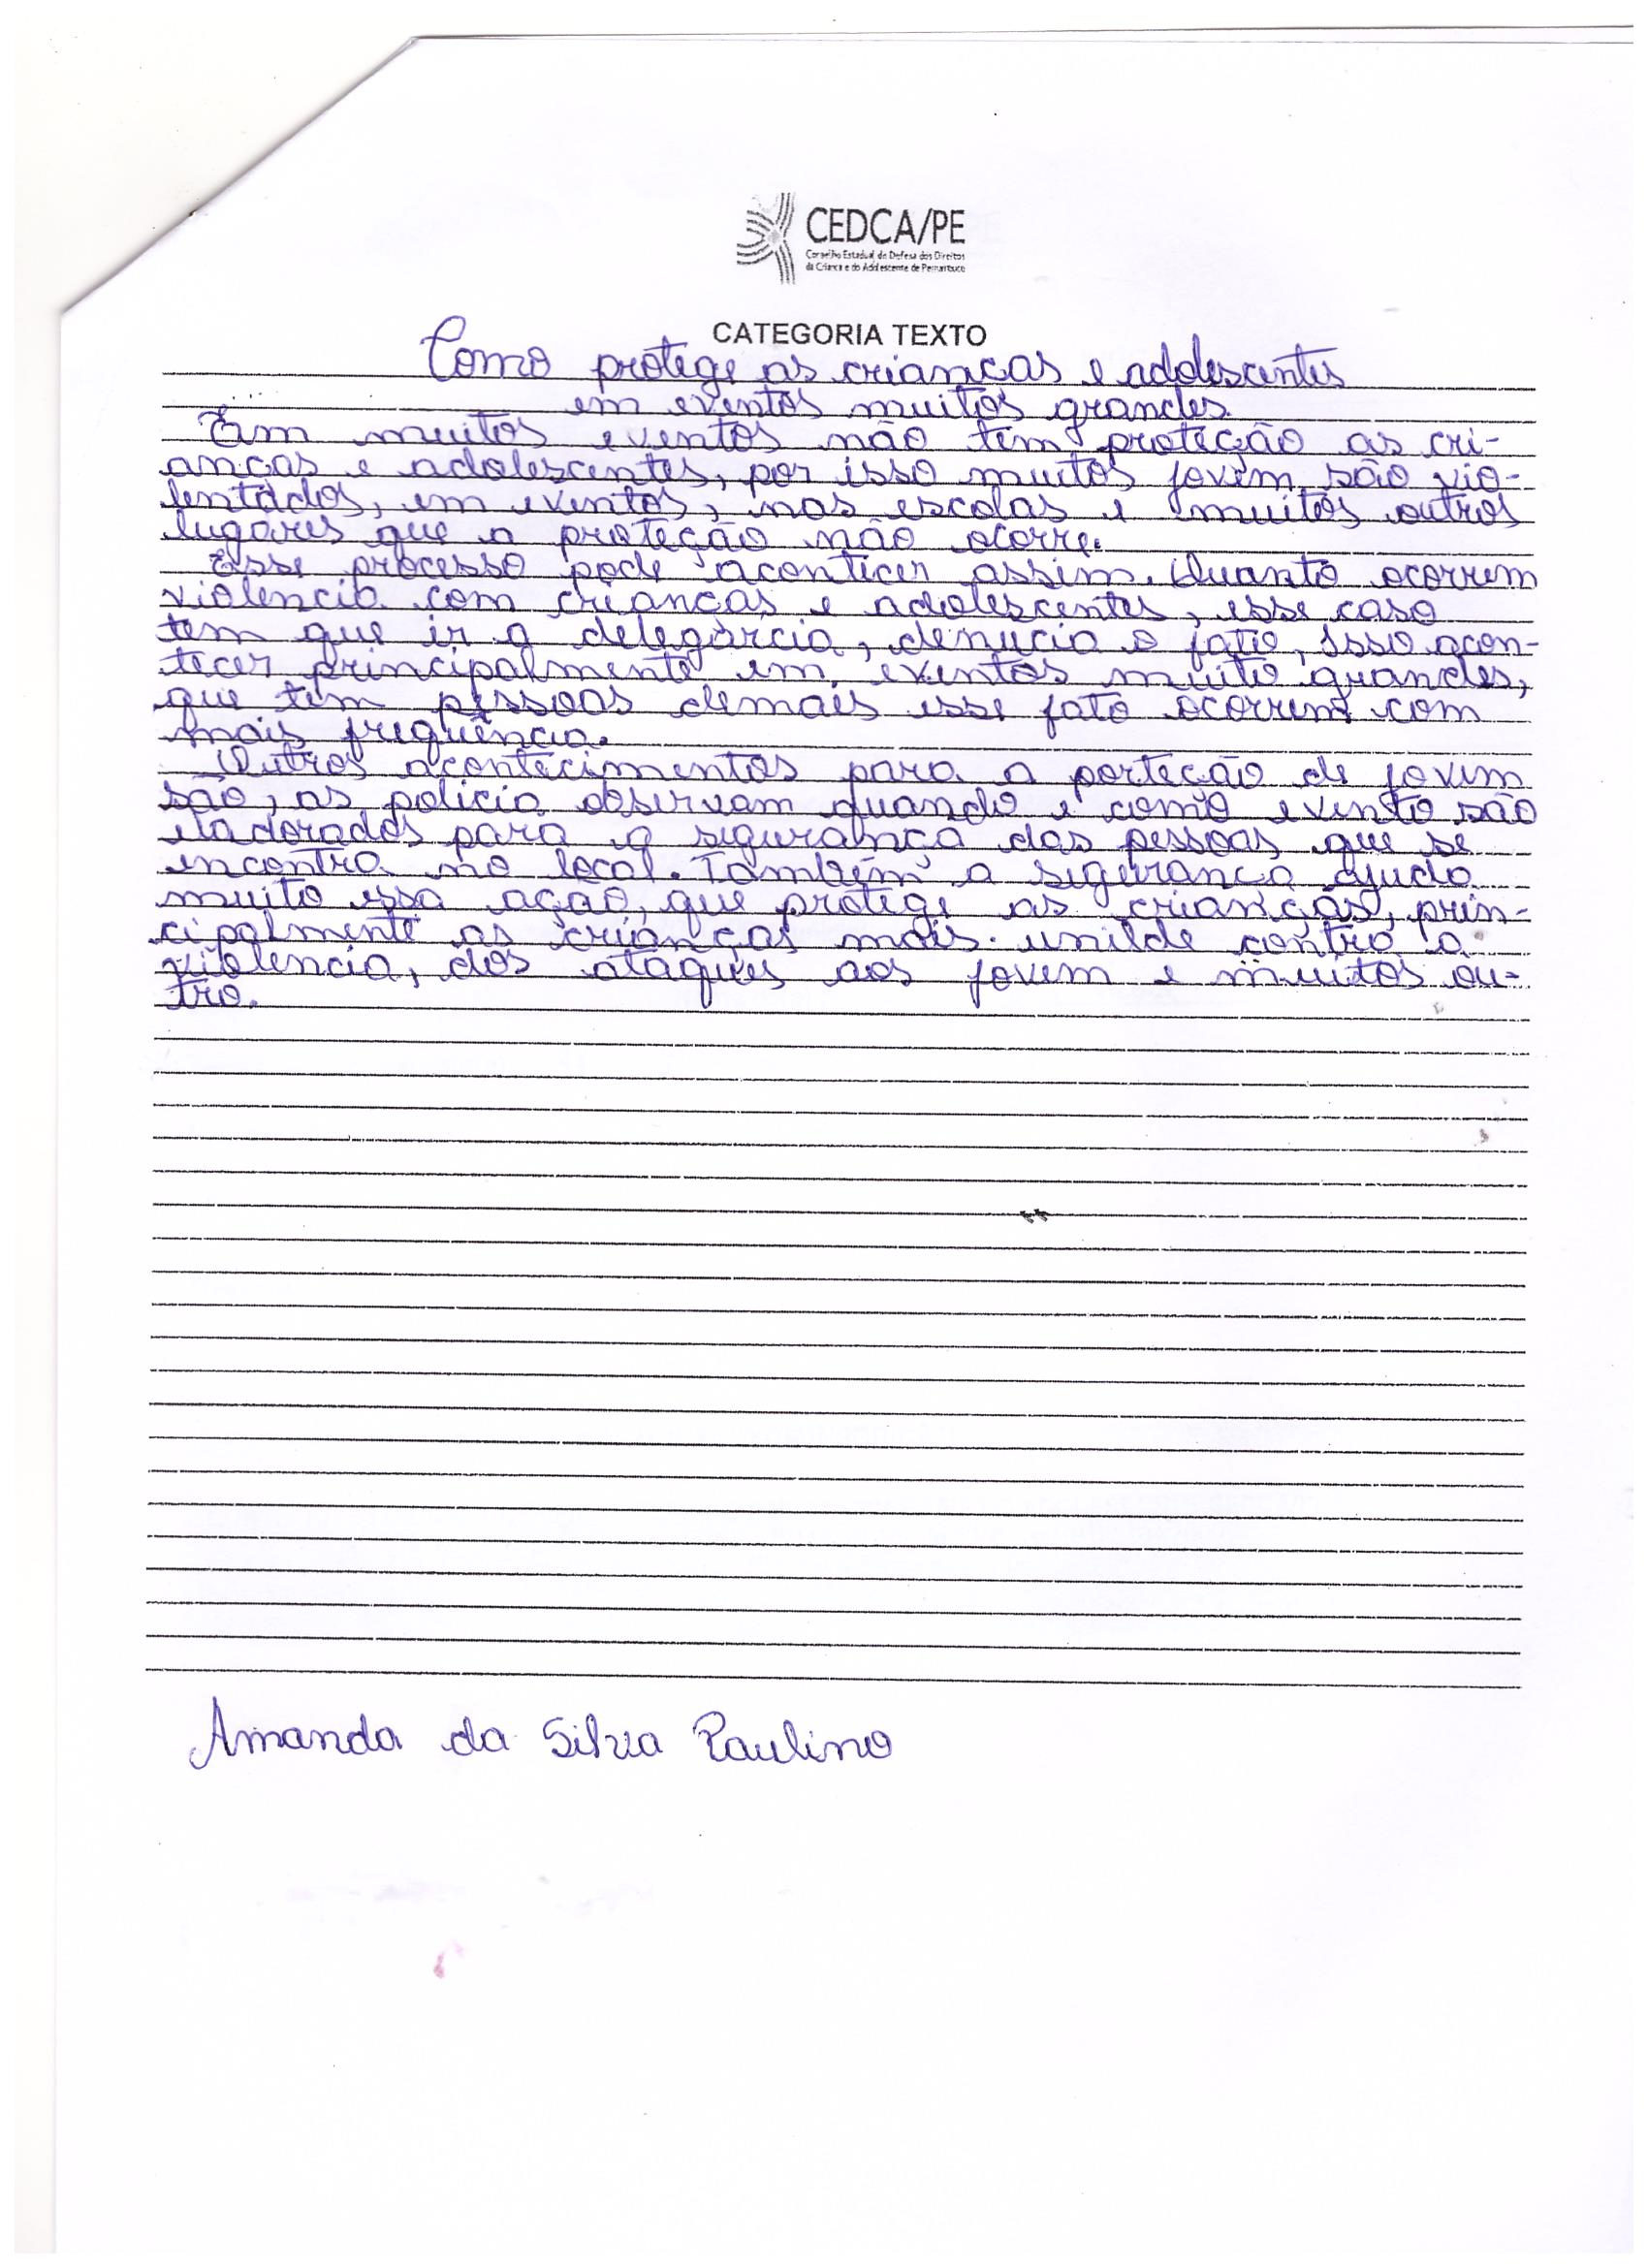 CEDCA/PE
Conselho Estadual de Defesa dos Direitos
da Criança e do Adolescente de Pernambuco
CATEGORIA TEXTO
Como protege as crianças e adolescentes
em eventos muitos grandes.
Em muitos eventos não tem proteção as cri-
anças e adolescentes, por isso muitos jovem são vio-
lentados, em eventos, nas escolas e muitos outros
lugares que a proteção não ocorre.
Esse processo pode acontecer assim. Quanto ocorrem
violência com crianças e adolescentes, esse caso
tem que ir a delegárcia, denucia o fato, Isso acon-
tecer principalmente em eventos muito grandes,
que tem pessoas demais esse fato ocorrem com
mais frequência.
Outros acontecimentos para a porteção de jovem
são, as policia observam quando e como evento são
eladorados para a sigurança das pessoas que se
encontra no local. Também a sigurança ajuda
muito essa ação, que protege as crianças, prin-
cipalmente as crianças mais. unilde contra a
violência, dos ataques aos jovem e muitos ou-
tro.
Amanda da Silva Paulino